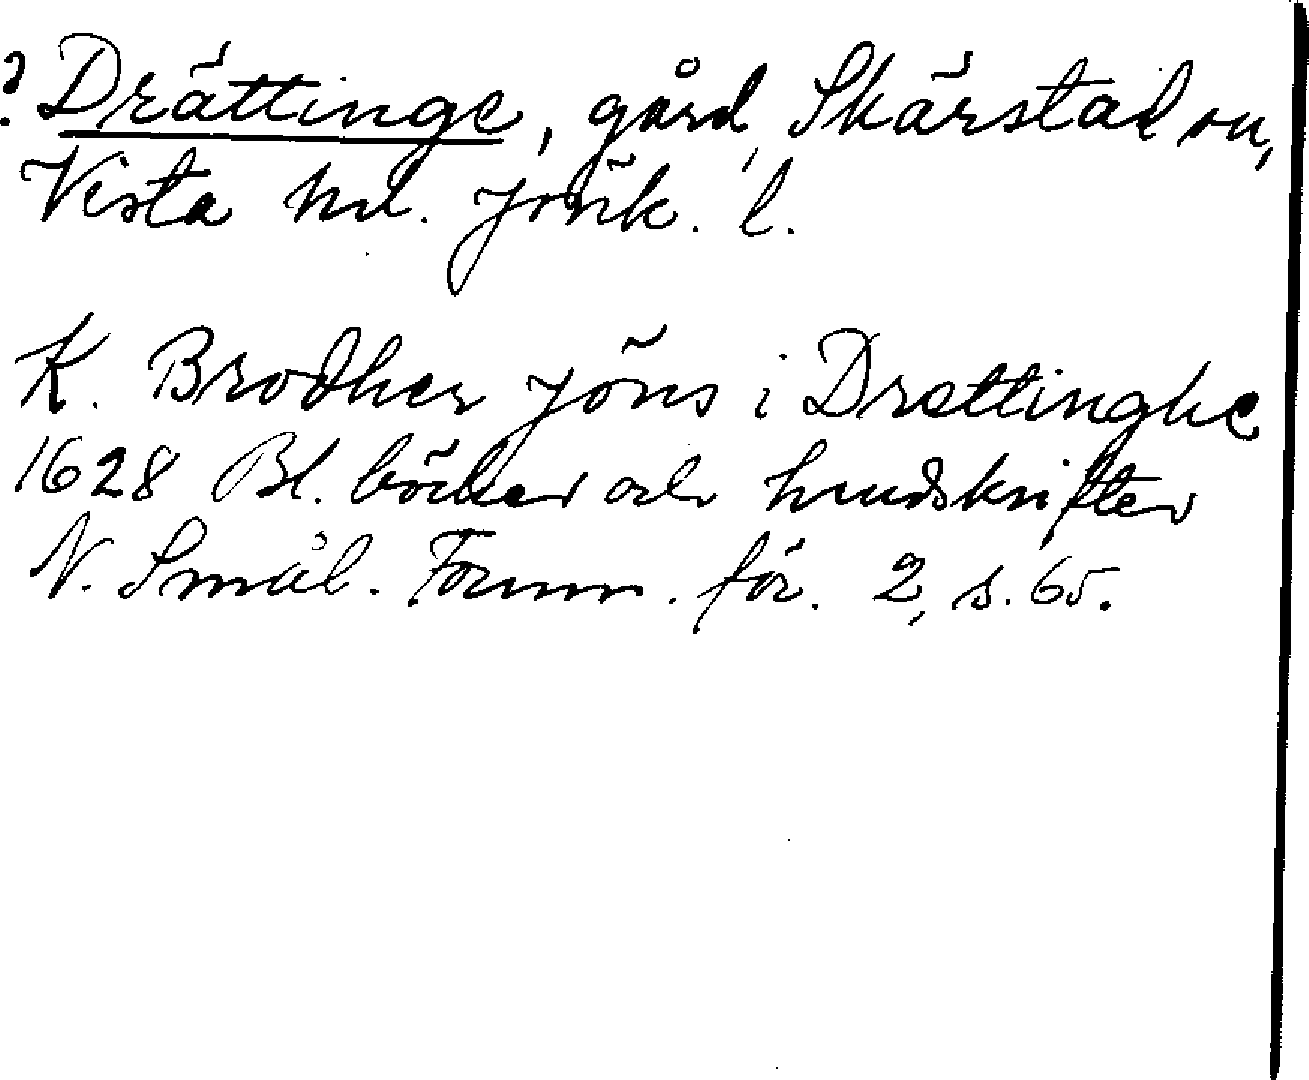 ? Drättinge, gård, Skärstad sn,
Vista hd. Jönk. l.
K. Brodher Jöns i Drettinghe
1628 Bl. böcker och handskrifter
N. Smål. Fornm. för. 2, s. 65.